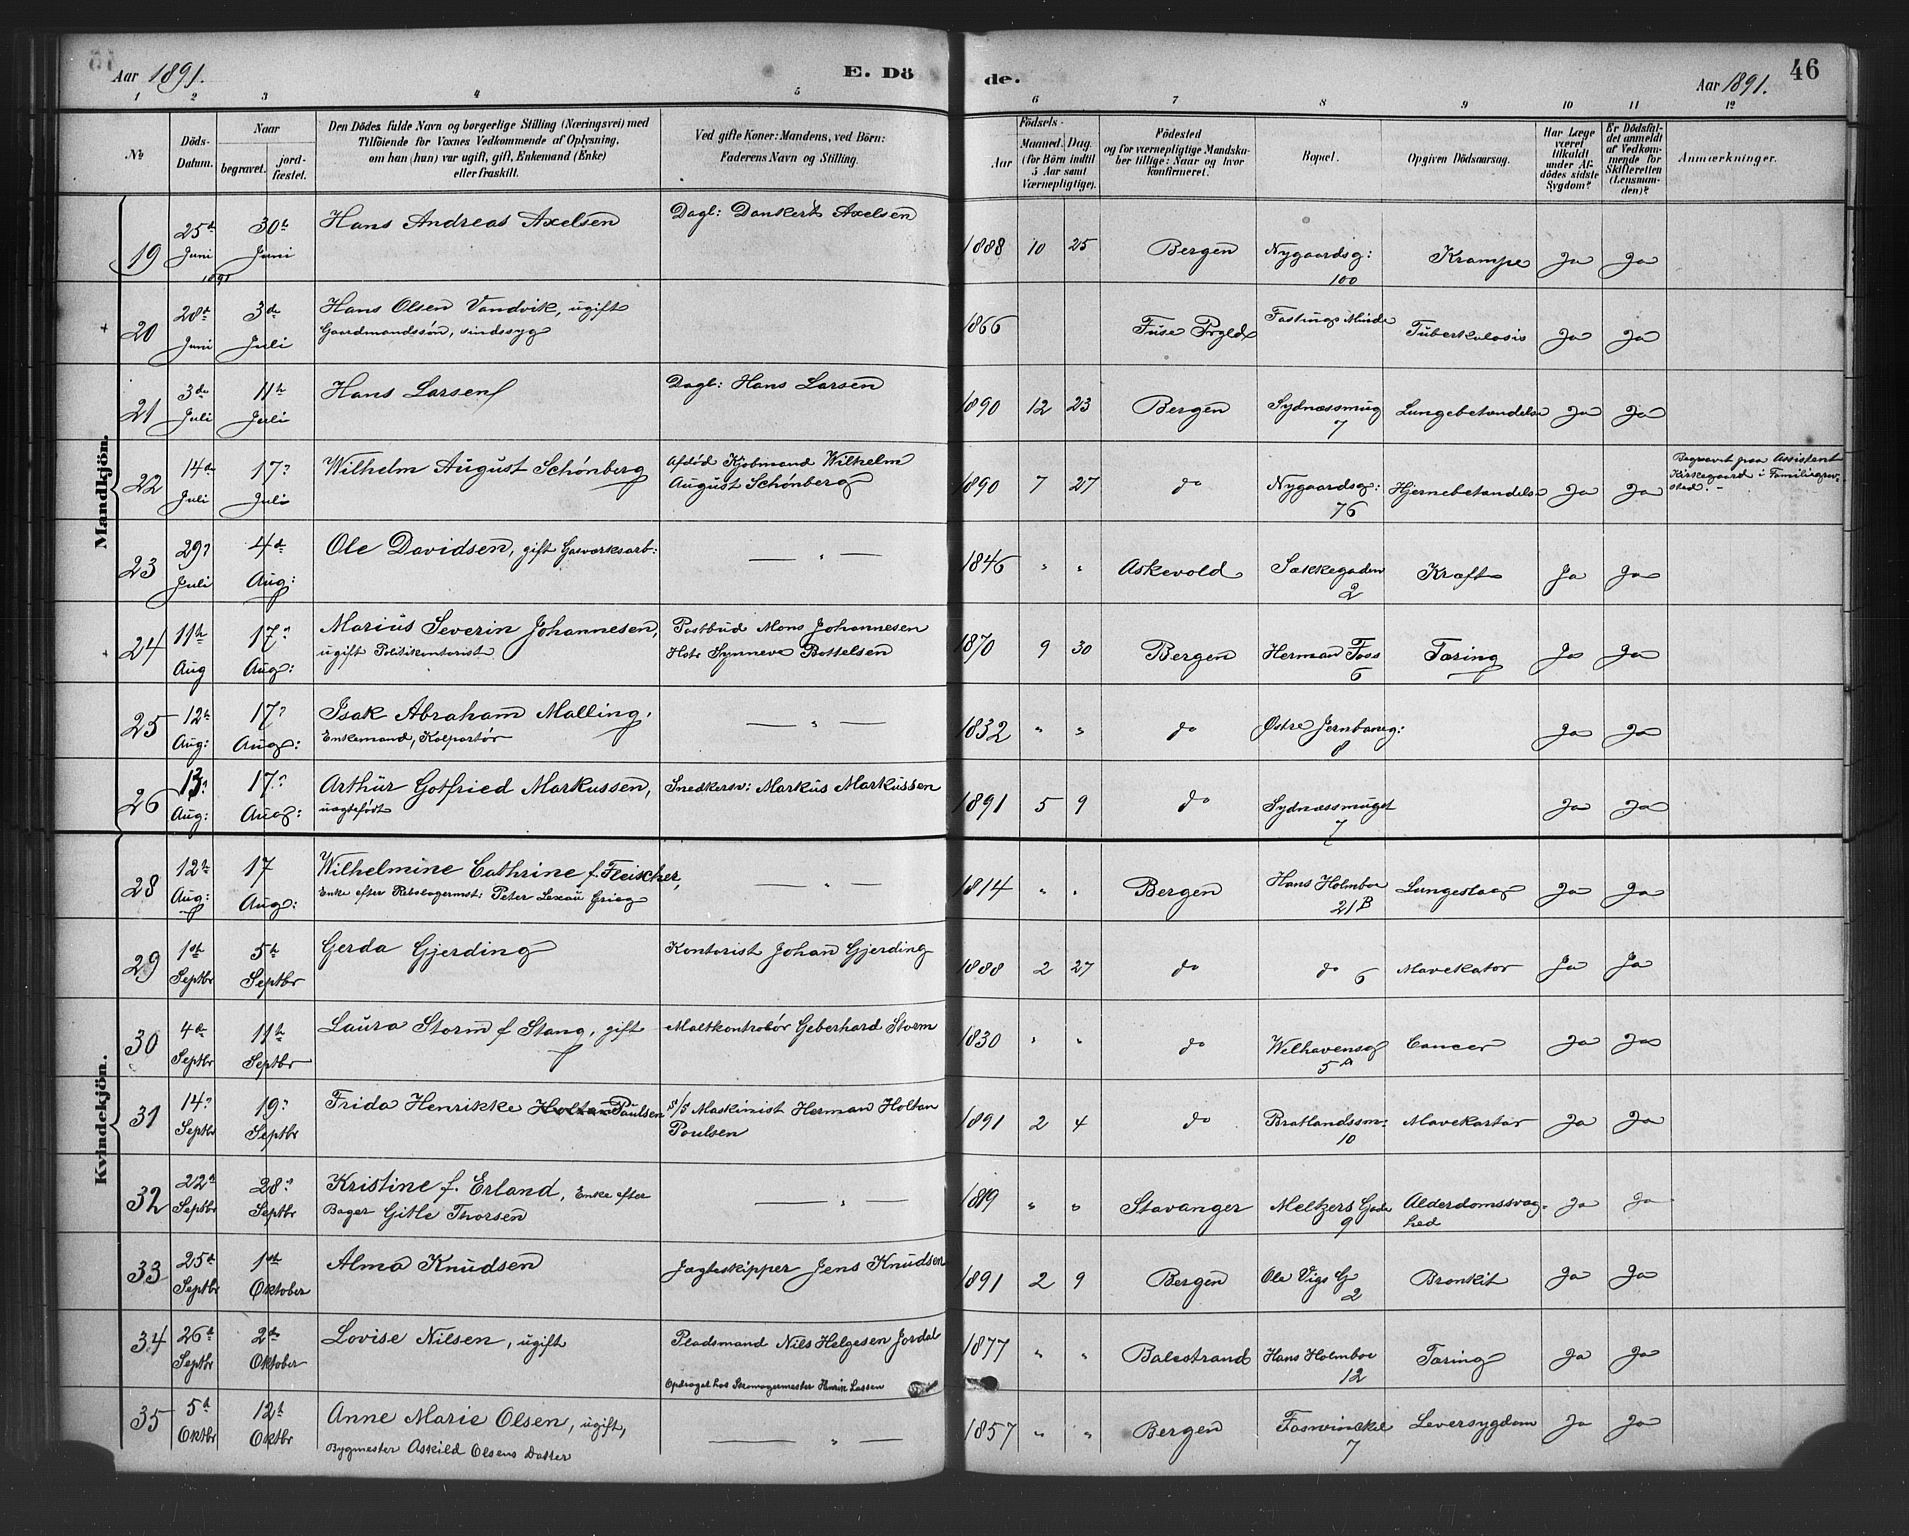 Aar 1891.
E. Dö
de.
Aar 1891.
46
1 2 3 4 5 6 7 8 9 10 11 12
No
Döds-Datum.
Naar
begravet.
jord-fæstet.
Den Dödes fulde Navn og borgerlige Stilling (Næringsvei) med
Tilföiende for Voxnes Vedkommende af Oplysning,
om han (hun) var ugift, gift, Enkemand (Enke)
eller fraskilt.
Ved gifte Koner: Mandens, ved Börn:
Faderens Navn og Stilling.
Födsels-
Aar
Maaned. Dag.
(for Börn indtil
5 Aar samt
Værnepligtige).
Födested
og for værnepligtige Mandska-
ber tillige: Naar og hvor
konfirmeret.
Bopæl.
Opgiven Dödsaarsag.
Har Læge
været
tilkaldt
under Af-
dödes sidste
Sygdom?
Er Dödsfal-
det anmeldt
af Vedkom-
mende for
Skifteretten
(Lensman-
den)?
Anmærkninger.
Mandkjön.
19 25de Juni 1891 30te Juni Hans Andreas Axelsen Dagl: Dankert Axelsen 1888 10 25 Bergen Nygaardsg: 100 Krampe Ja Ja
20 28de Juni 3de Juli Hans Olsen Vandvik, ugift
Gaardmandssøn, sindssyg 1866 Fuse Prgld Fastings Minde Tuberkulosis Ja Ja
21 3de Juli 11te Juli Hans Larsen Dagl: Hans Larsen 1890 12 23 Bergen Sydnæssmug 7 Lungebetændelse Ja Ja
22 14de Juli 17? Juli Wilhelm August Schönberg Afdöd Kjöbmand Wilhelm
August Schönberg 1890 7 27 do Nygaardsg: 76 Hjernebetændelse Ja Ja Begravet paa Assistent
Kirkegaard i Familiegrav-
sted. -
23 29? Juli 4de Aug: Ole Davidsen, gift Gasværksarb: — " — 1846 " " Askevold Sækkegaden 2 Kræft Ja Ja
24 11te Aug 17? Aug: Marius Severin Johannesen,
ugift Politikontorist Postbud Mons Johannesen
Hstr Synneve Bottelsen 1870 9 30 Bergen Herman Foss 6 Tæring Ja Ja
25 12te Aug: 17? Aug: Isak Abraham Malling,
Enkemand, Kolportör — " — 1832 " " do Østre Jernbaneg: 8 Ja Ja
26 13? Aug: 17? Aug: Arthur Gotfried Markussen,
uægtefödt Snedkersv: Markus Markussen 1891 5 9 do Sydnæssmuget 7 Ja Ja
Kvindekjön.
28 12te Aug: 17 Aug: Wilhelmine Cathrine f. Fleischer,
Enke efter Rebslagermst: Peter Lexau Grieg — " — 1814 " " Bergen Hans Holmboe 21 B Lungeslag Ja Ja
29 1ste Septbr 5te Septbr Gerda Gjerding Kontorist Johan Gjerding 1888 2 27 do do 6 Mavekatar Ja Ja
30 4de Septbr 11te Septbr Laura Storm f Stang, gift Maltkontrolör Geberhard Storm 1830 " " do Welhavensg 5 A Cancer Ja Ja
31 14? Septbr 19? Septbr Frida Henrikke Holtan Paulsen S/S Maskinist Herman Holtan
Poulsen 1891 2 4 do Bratlandssm: 10 Mavekatar Ja Ja
32 22de Septbr 28? Septbr Kristine f. Erland, Enke efter
Bager Gitle Thorsen — " — 1819 " " Stavanger Meltzers Gade 9 Alderdomssvag-
hed Ja Ja
33 25de Septbr 1ste Oktober Alma Knudsen Jagteskipper Jens Knudsen 1891 2 9 Bergen Ole Vigs G 2 Bronkit Ja Ja
34 26de Septbr 2den Oktober Lovise Nilsen, ugift Pladsmand Nils Helgesen Jordal
Opdraget hos Skomagermester Henrik Lassen 1877 " " Balestrand Hans Holmboe 12 Tæring Ja Ja
35 5te Oktbr 12te Oktbr Anne Marie Olsen, ugift,
Bygmester Askild Olsens Datter — " — 1857 " " Bergen Fosswinckel 7 Leversygdom Ja Ja